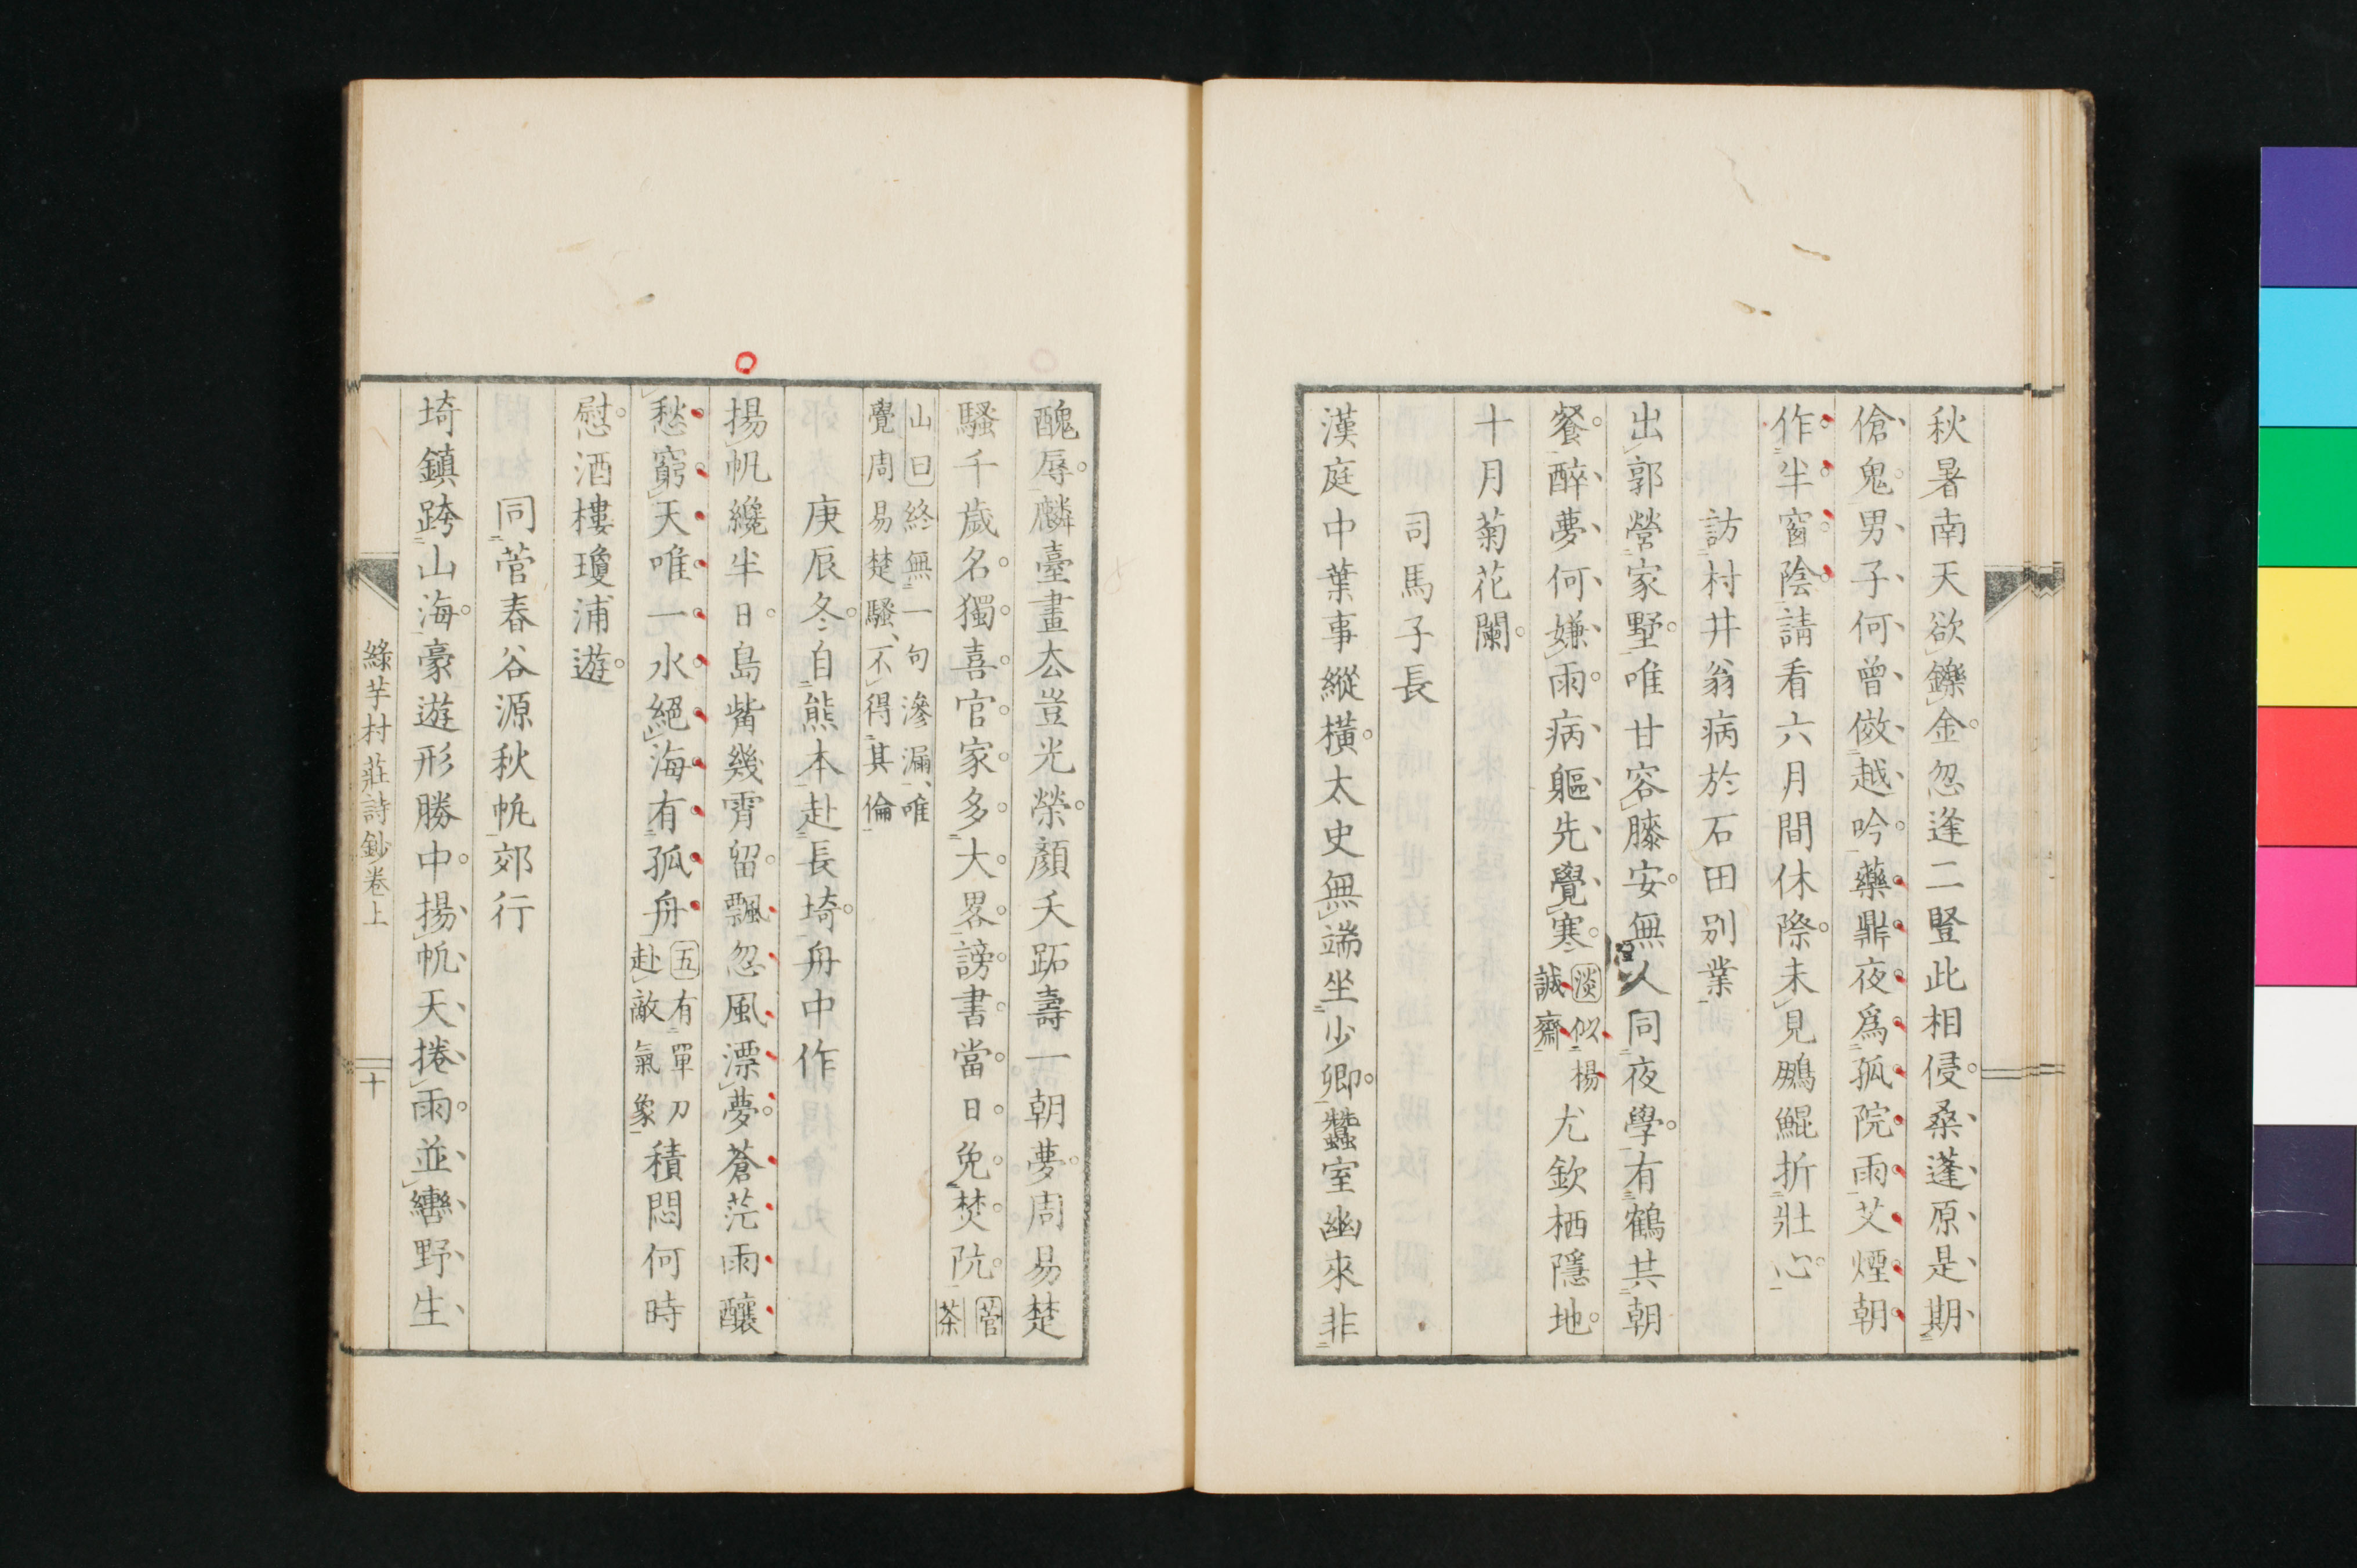 秋暑南天欲鑠金忽逢二豎此相侵桑蓬原是期
傖鬼男子何曾倣越吟藥鼎夜爲孤院雨艾煙朝
作半窗陰請看六月間休際未見鵬鯤折壯心
訪村井翁病於石田別業
出郭營家墅唯甘容膝安無人同夜學有鶴共朝
餐醉夢何嫌雨病軀先覺寒淡似楊誠齋尤欽栖隱地
十月菊花闌
司馬子長
漢庭中葉事縱橫太史無端坐少卿蠶室幽來非
醜辱麟臺畫厺豈光榮顏夭跖壽一朝夢周易楚
騷千歲名獨喜官家多大畧謗書當日免焚阬菅茶
山曰終無一句滲漏唯
覺周易楚騷不得其倫
庚辰冬自熊本赴長埼舟中作
揚帆纔半日島觜幾宵留飄忽風漂夢蒼茫雨釀
愁窮天唯一水絕海有孤舟五有單刀赴敵氣象積悶何時
慰酒樓瓊浦遊
同菅春谷源秋帆郊行
埼鎮跨山海豪遊形勝中揚帆天捲雨並轡野生
綠芋村莊詩鈔卷上
十